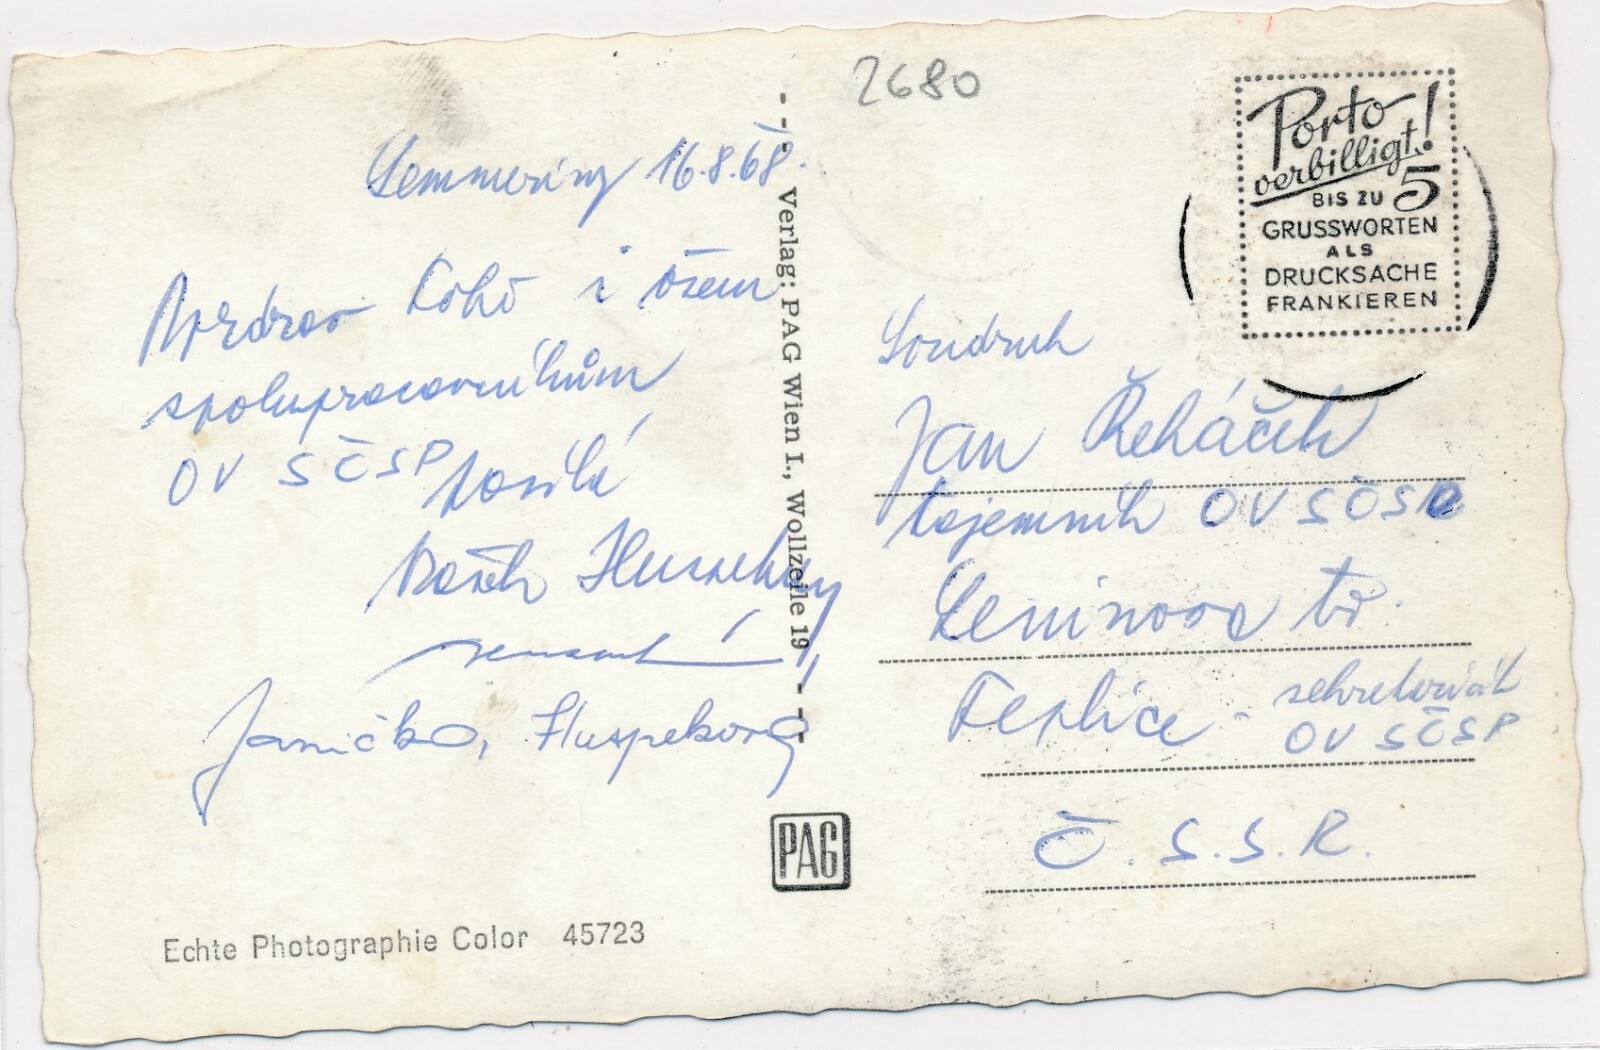 2680
Semmering 16.8.68.
Pozdrav Tobě i všem
spolupracovníkům
OV SČSP posílá
Janička,
Verlag: PAG Wien I., Wollzeile 19
PAG
Echte Photographie Color 45723
Porto
verbilligt!
BIS ZU 5
GRUSSWORTEN
ALS
DRUCKSACHE
FRANKIEREN
Soudruh
Jan Řeháček
tajemník OV SČSP
Leninova tř.
Teplice - sekretariát
OV SČSP
Č.S.S.R.